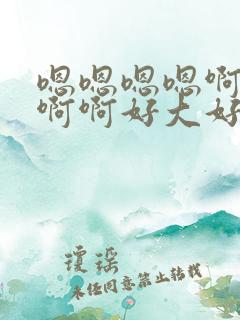 嗯嗯嗯嗯啊
啊啊好大好
琼瑶
未经同意禁止转载